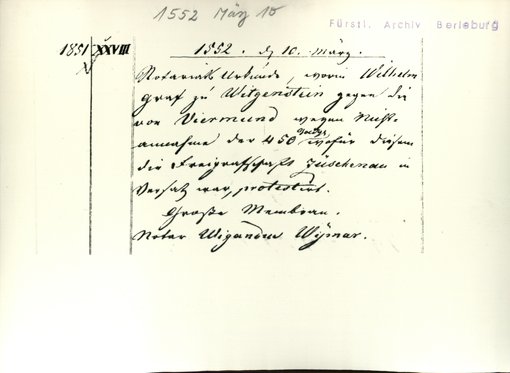 1552 März 10
Fürstl. Archiv Berleburg
1851 XXVIII
1552. d. 10. März.
Notariats Urkunde, worin Wilhelm
Graf zu Witgenstein gegen die
von Viermund wegen Nicht-
annahme der 450 wofür diesen
die Freigrafschaft Züschenau in
Versatz war, protestirt.
Große Membran.
Notar Wigandus Wymar.